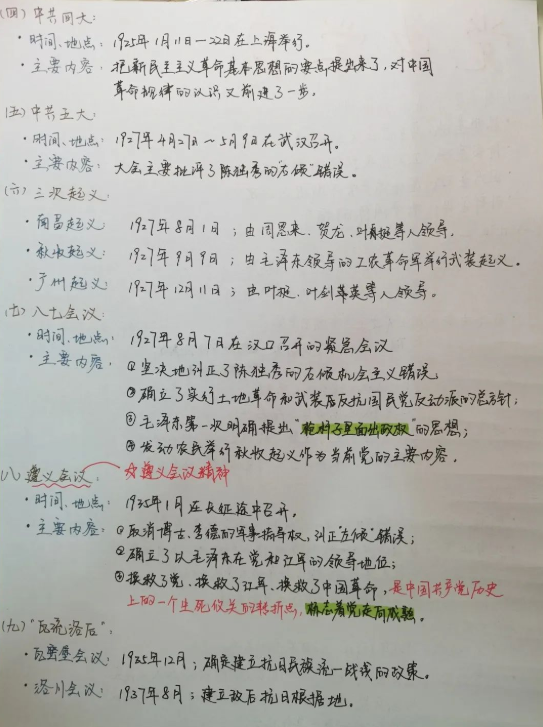 (四) 中共四大:
· 时间、地点: 1925年1月11日—22日在上海举行。
· 主要内容: 把新民主主义革命基本思想的要点提出来了，对中国
革命规律的认识又前进了一步。
(五) 中共五大:
· 时间、地点: 1927年4月27日~5月9日在武汉召开。
· 主要内容: 大会主要批评了陈独秀的“右倾”错误。
(六) 三次起义:
· 南昌起义: 1927年8月1日; 由周恩来、贺龙、叶挺等人领导。
· 秋收起义: 1927年9月9日; 由毛泽东领导的工农革命军举行武装起义。
· 广州起义: 1927年12月11日; 由叶挺、叶剑英等人领导。
(七) 八七会议:
· 时间、地点: 1927年8月7日在汉口召开的紧急会议
· 主要内容: ①坚决地纠正了陈独秀的右倾机会主义错误
②确立了实行土地革命和武装反抗国民党反动派的总方针;
③毛泽东第一次明确提出“枪杆子里面出政权”的思想;
④发动农民举行秋收起义作为当前党的主要内容。
(八) 遵义会议: 遵义会议精神
· 时间、地点: 1935年1月在长征途中召开。
· 主要内容: ①取消博古、李德的军事指导权，纠正“左倾”错误;
②确立了以毛泽东在党和红军的领导地位;
③挽救了党、挽救了红军、挽救了中国革命，是中国共产党历史
上的一个生死攸关的转折点，标志着党走向成熟。
(九) “瓦流洛后”:
· 瓦窑堡会议: 1935年12月; 确定建立抗日民族统一战线的政策。
· 洛川会议: 1937年8月; 建立敌后抗日根据地。